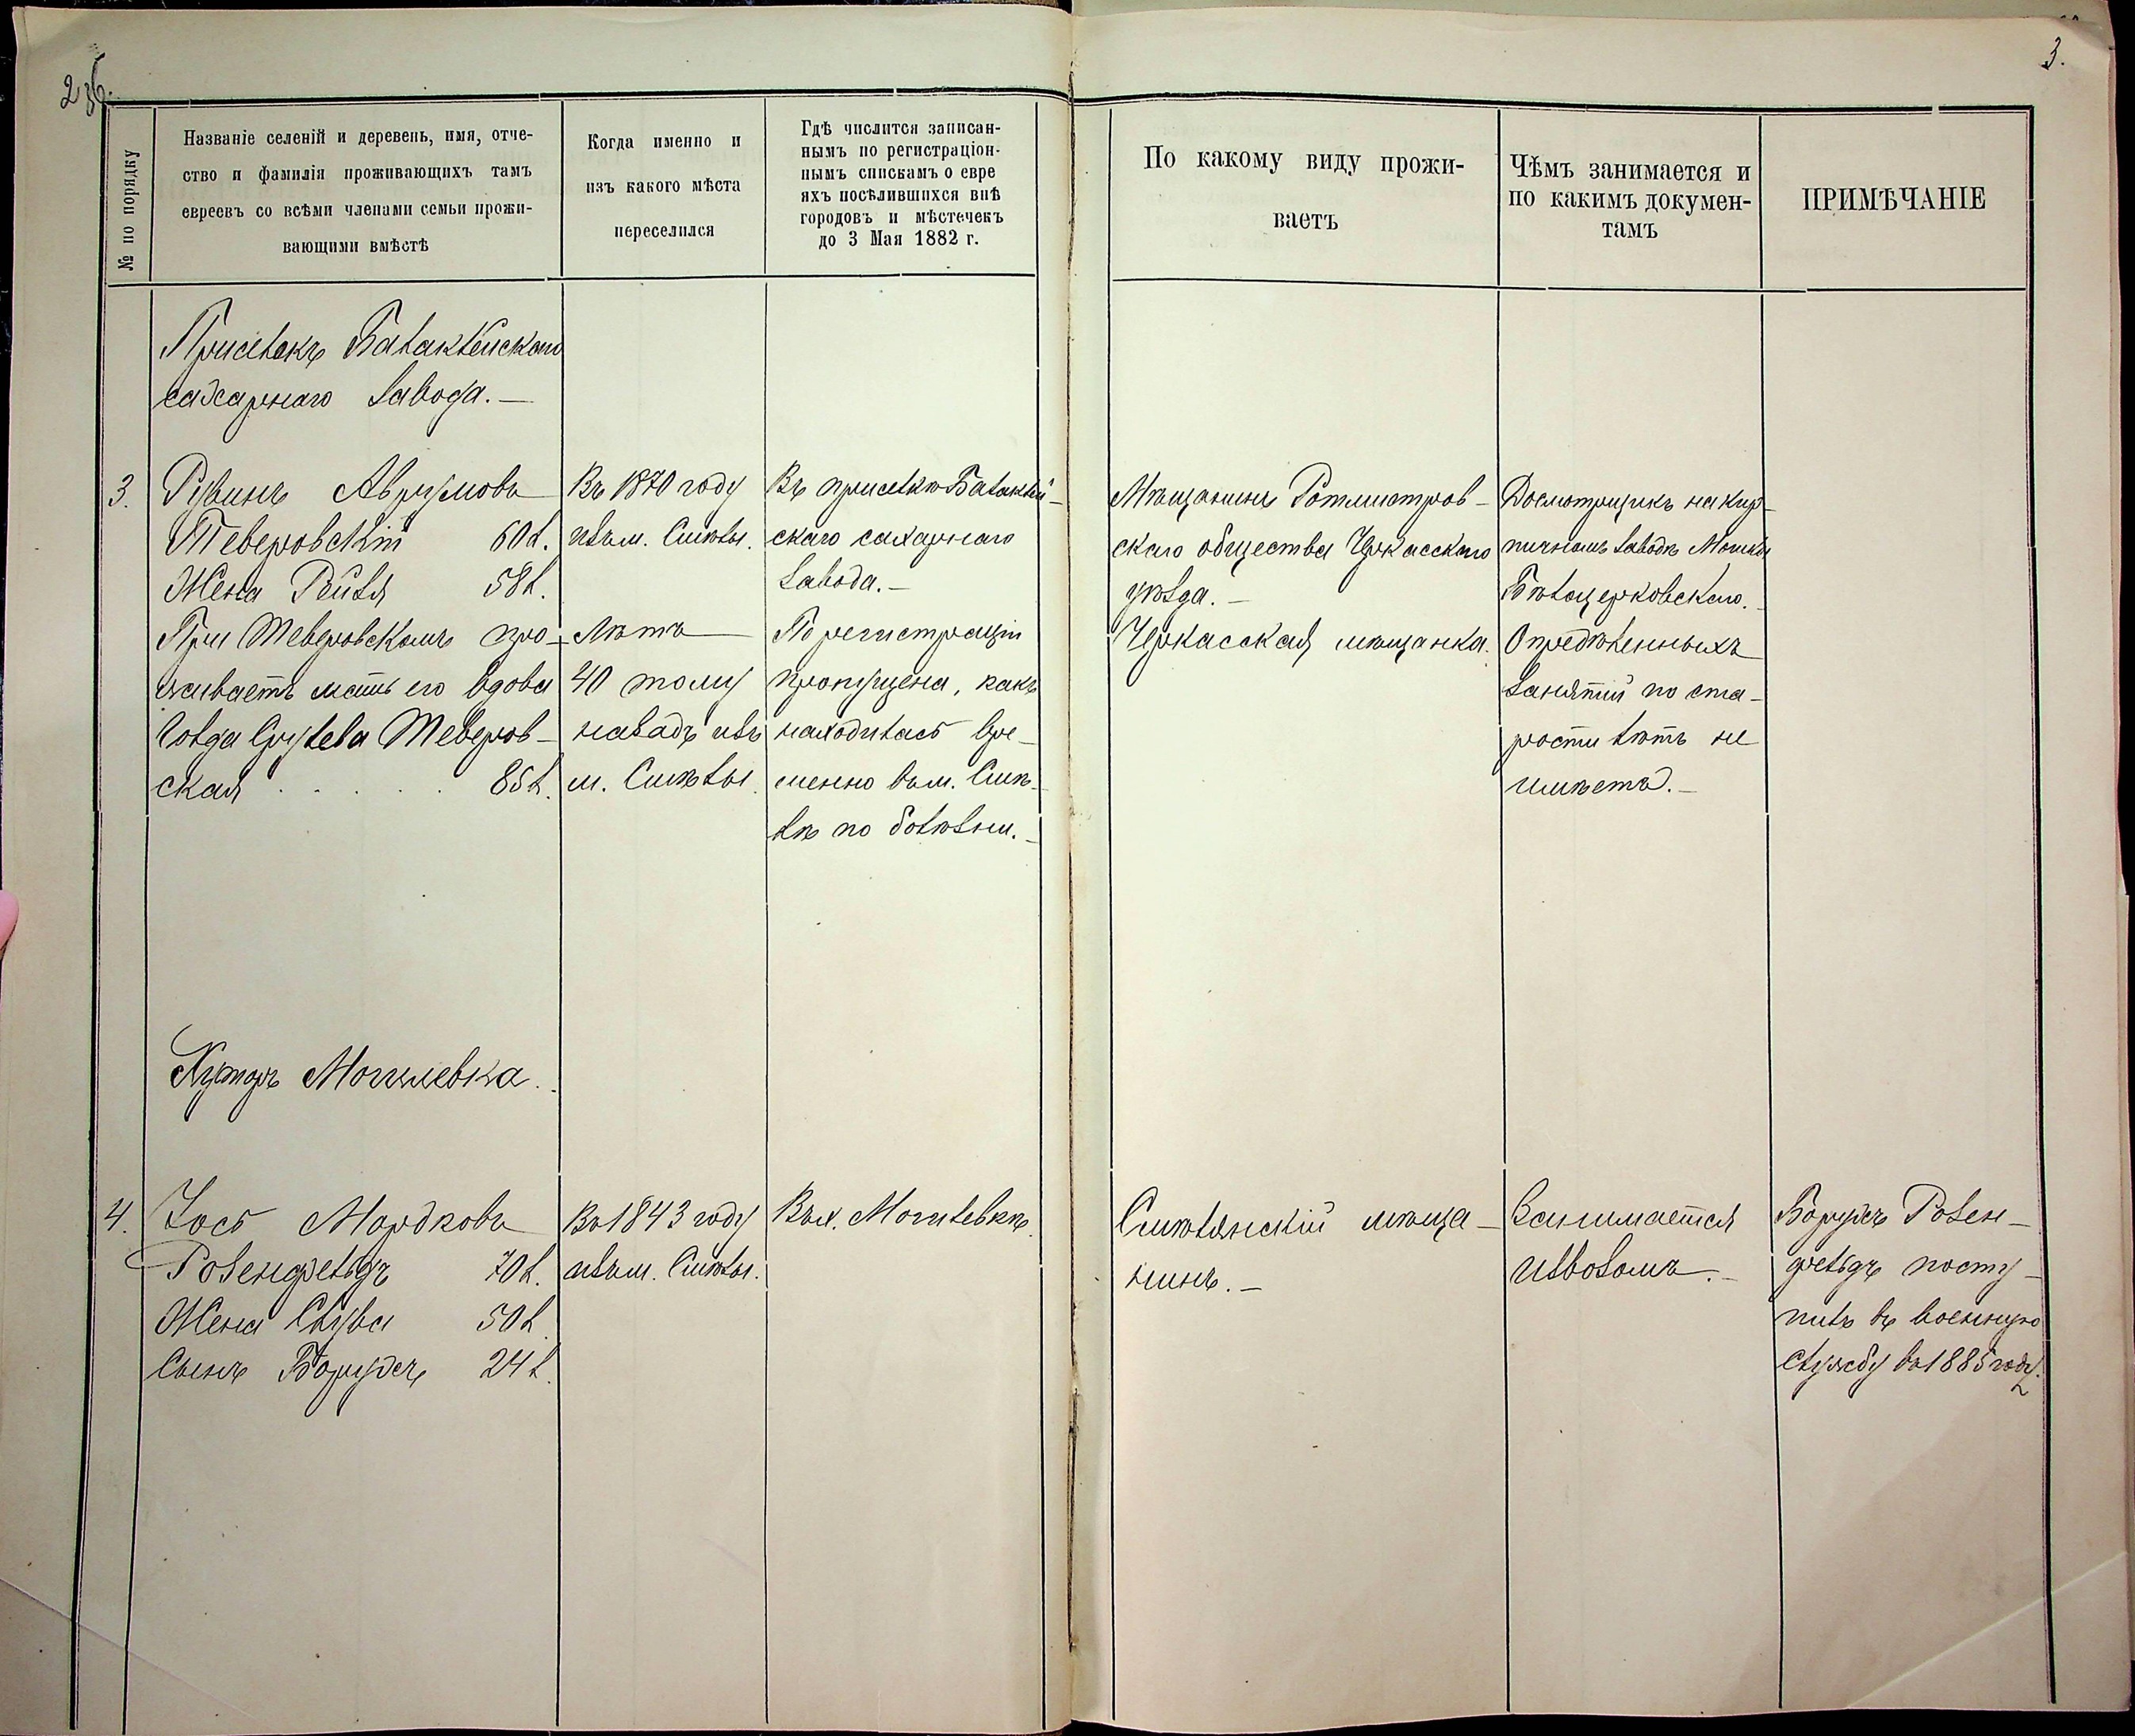 2 об.
3.
№ по порядку
Названіе селеній и деревень, имя, отче-
ство и фамилія проживающихъ тамъ
евреевъ со всѣми членами семьи прожи-
вающими вмѣстѣ
Когда именно и
изъ какого мѣста
переселился
Гдѣ числится записан-
нымъ по регистраціон-
нымъ спискамъ о евре
яхъ посѣлившихся внѣ
городовъ и мѣстечекъ
до 3 Мая 1882 г.
По какому виду прожи-
ваетъ
Чѣмъ занимается и
по какимъ докумен-
тамъ
ПРИМѢЧАНІЕ
Приселокъ Балаклейскаго
сахарнаго завода.—
3.
Рувинъ Аврумовъ
Теверовскій 60 л.
Жена Рейзя 58 л.
При Теверовскомъ про-
живаетъ мать его вдова
Голда Срулева Теверов-
ская . . . . . 85 л.
Въ 1870 году
изъ м. Смѣлы.
Лѣтъ
40 тому
назадъ изъ
м. Смѣлы.
Въ приселкѣ Балаклей-
скаго сахарнаго
завода.—
По регистраціи
пропущена, какъ
находилась вре-
менно въ м. Смѣ-
лѣ по болѣзни.—
Мѣщанинъ Ротмистров-
скаго общества Черкасскаго
уѣзда.—
Черкасская мѣщанка.
Досмотрщикъ на кир-
пичномъ заводѣ Мошки
Бѣлоцерковскаго.
Опредѣленныхъ
занятій по ста-
рости лѣтъ не
имѣетъ.—
Хуторъ Могилевка.
4.
Іось Мордковъ
Розенфельдъ 70 л.
Жена Слува 50 л.
Сынъ Борухъ 24 л.
Въ 1843 году
изъ м. Смѣлы.
Въ х. Могилевкѣ.
Смѣлянскій мѣща-
нинъ.—
Занимается
извозомъ.—
Борухъ Розен-
фельдъ посту-
пилъ въ военную
службу въ 1885 году.